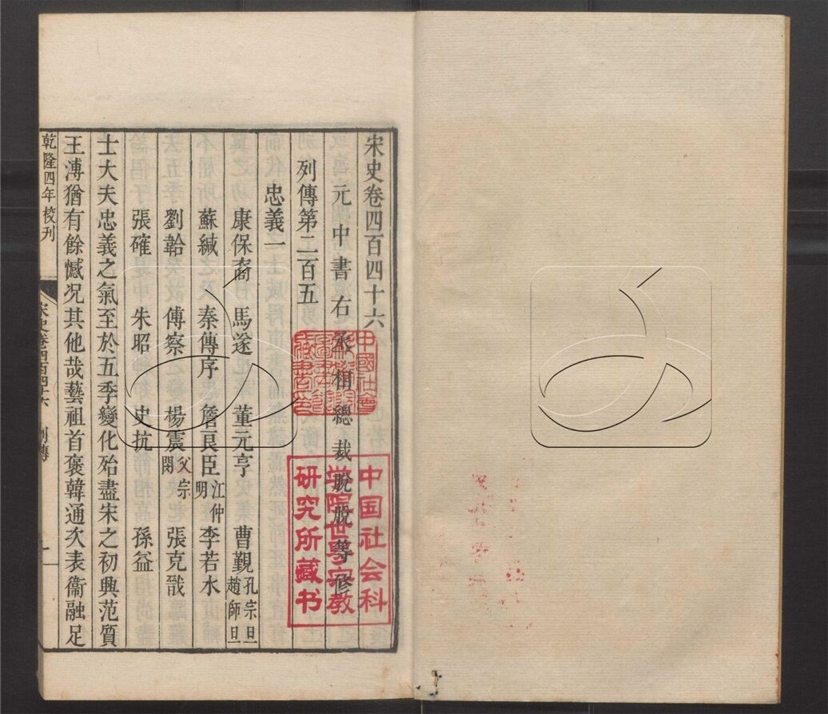 宋史卷四百四十六
元中書右丞相總裁脫脫等修
列傳第二百五
忠義一
康保裔 馬遂 董元亨 曹覲 孔宗旦 趙師旦
蘇緘 秦傳序 詹良臣 江仲明 李若水
劉韐 傅察 楊震 父宗閔 張克戩
張確 朱昭 史抗 孫益
士大夫忠義之氣至於五季變化殆盡宋之初興范質
王溥猶有餘憾況其他哉藝祖首褒韓通次表衞融足
乾隆四年校刊
宋史卷四百四十六 列傳
一
中国社会科
学院世界宗教
研究所藏书